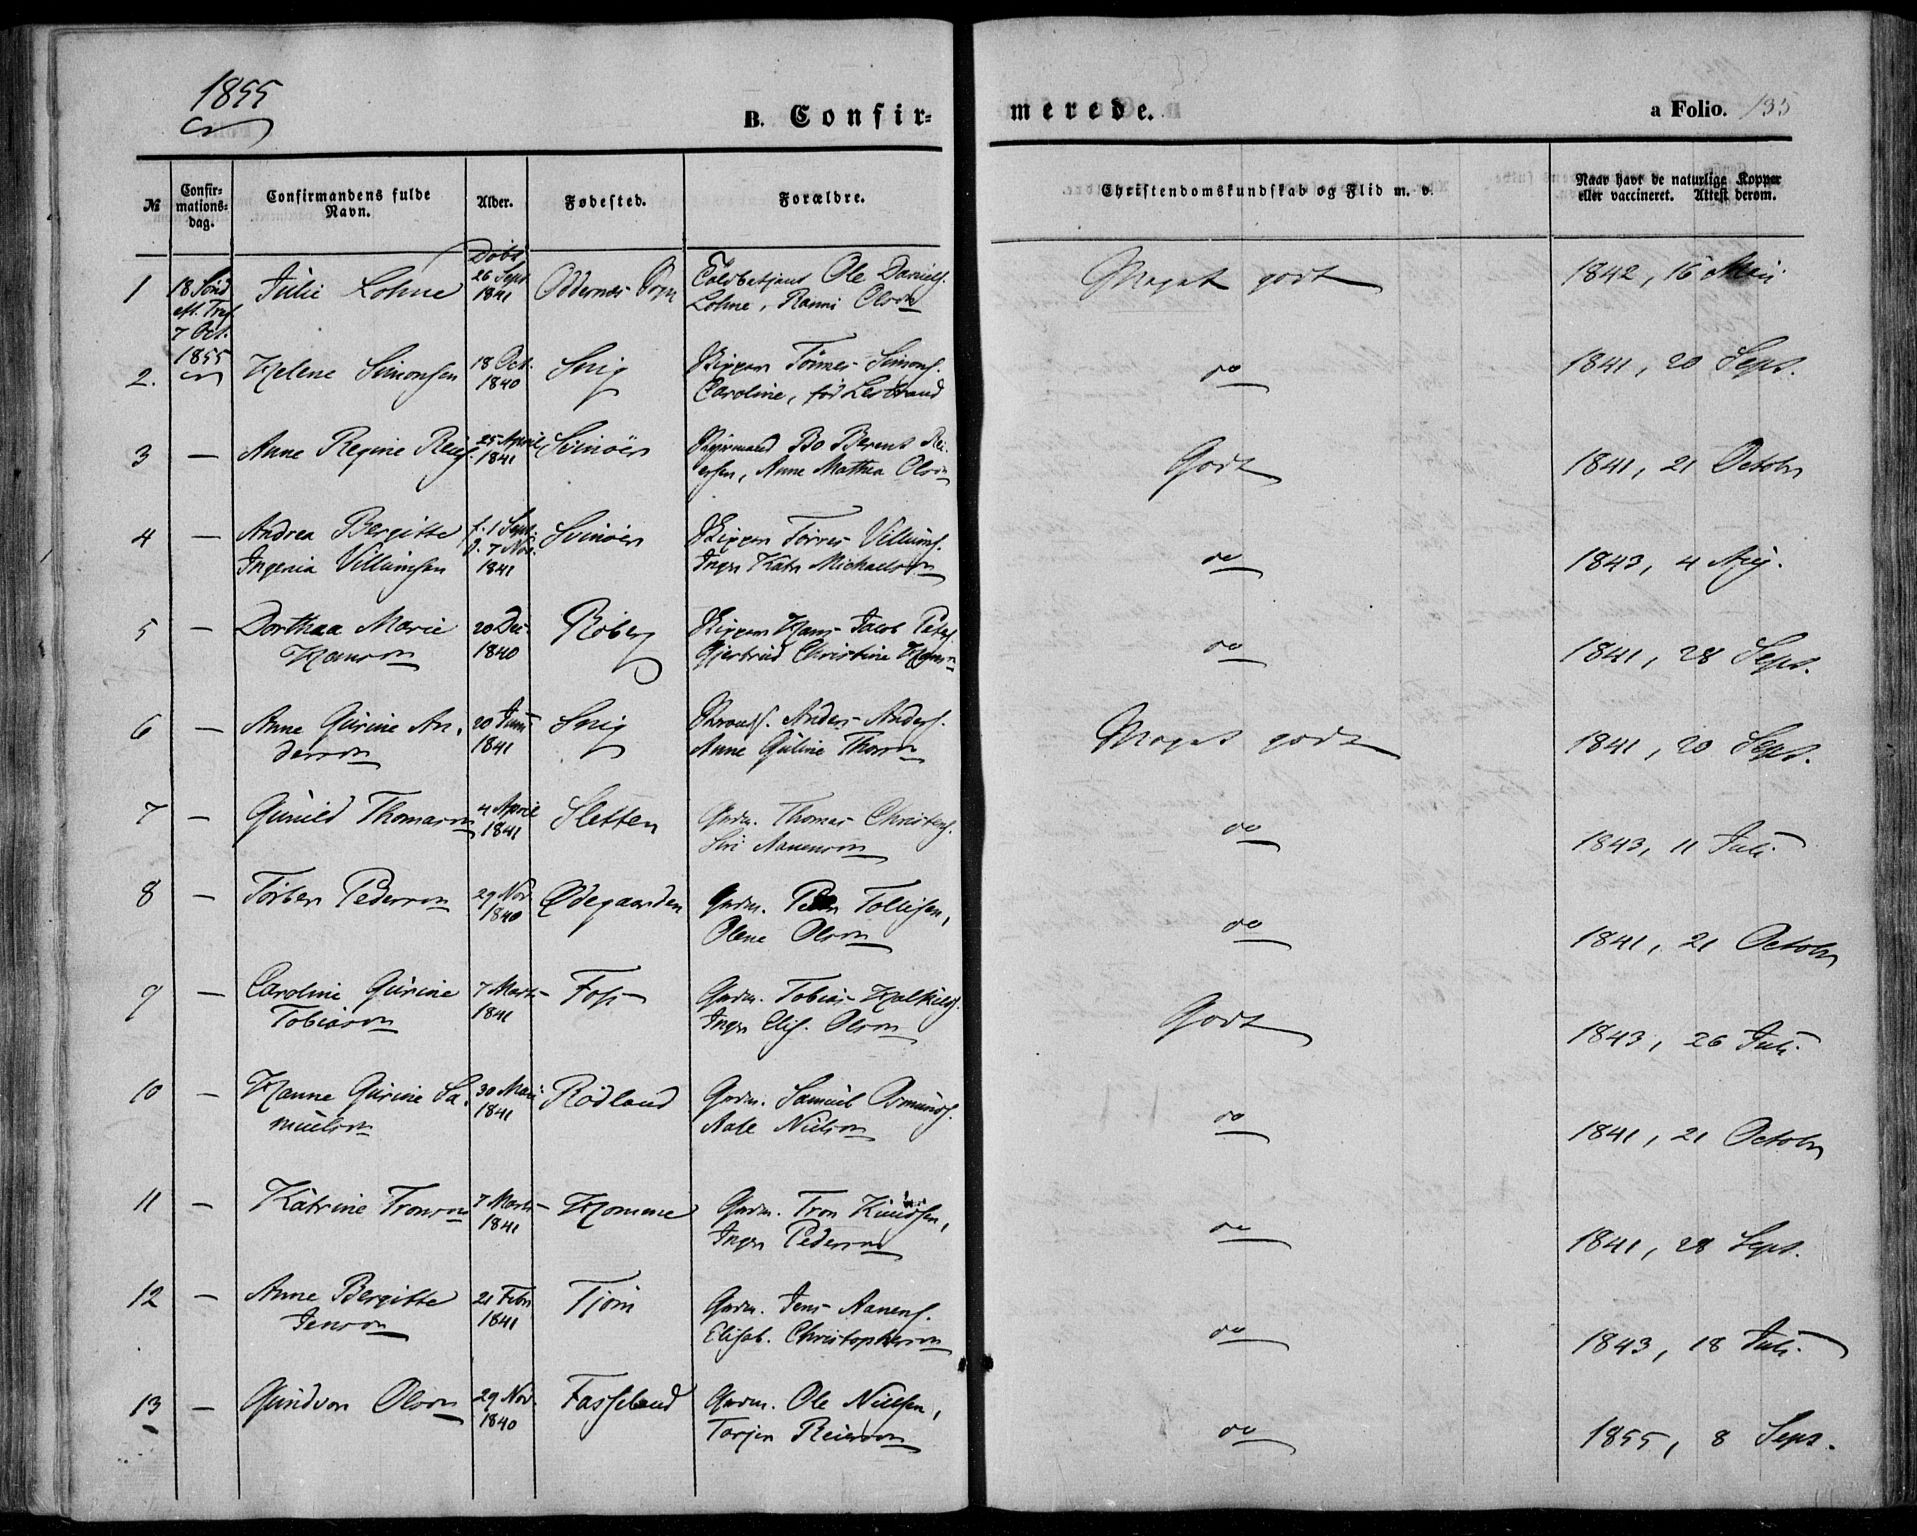 1855
B. Confir=
merede.
a Folio. 135
№
Confir-
mations-
dag.
Confirmandens fulde
Navn.
Alder.
Fødested.
Forældre.
Christendomskundskab og Flid m. v.
Naar havt de naturlige Kopper
eller vaccineret. Attest derom.
1
18 Sönd
eft. Tref.
7 Oct.
1855
Julie Lohne
Döbt
26 Sept
1841
Oddernes Sogn
Toldbetjent Ole Daniels.
Lohne, Ranni Olsen
Meget godt
1842, 16 Mai
2.
Helene Simonsen
18 Oct.
1840
Snig
Skipper Tönnes Simons.
Caroline, fød
do
1841, 20 Sept.
3 —
Anne Regine Reiers.
25 April
1841
Svinöer
Bo Berent Rei-
ersen, Anne Mathea Olsen
Godt
1841, 21 Octobr
4 —
Andrea Bergitte
Ingenia Villumsen
f. 1 Sept.
d. 7 Nov.
1841
Svinöer
Skipper Törres Villums.
Inger Katr Michaelsen
do
1843, 4 Aug.
5 —
Dorthea Marie
Hansen
20 Dec
1840
Roberg
Skipper Hans Jacob Peters.
Gjertrud Christine Hans.
do
1841, 28 Sept.
6 —
Anne Gurine An-
dersen
20 Juni
1841
Snig
Anders Anders.
Anne Guline Thorsen
Meget godt
1841, 20 Sept.
7 —
Gunild Thomasen
4 April
1841
Sletten
Grdm. Thomas Christens.
Siri Aanensen
do
1843, 11 Juli
8 —
Torber Pedersen
29 Nov
1840
Ødegaarden
Grdm. Peder Tollefsen,
Olene Olsen
do
1841, 21 Octobr
9 —
Caroline Gurine
Tobiasen
7 Marts
1841
Foss
Grdm. Tobias Halkilds.
Inger Elis. Olsen
Godt
1843, 26 Juli
10 —
Hanne Gurine Sa-
muelsen
30 Mai
1841
Rödland
Grdm. Samuel Osmunds.
Aase Nielsen
do
1841, 21 Octobr
11 —
Katrine Tronsen
7 Marts
1841
Homme
Grdm. Tron Knudsen,
Inger Pedersen
do
1841, 28 Sept.
12 —
Anne Bergitte
Jensen
21 Febr
1841
Tjom
Grdm. Jens Aanens.
Elisab. Christophersen
do
1843, 18 Juli
13 —
Gundvor Olsen
29 Nov.
1840
Fasseland
Grdm. Ole Nielsen,
Torjer Reiersen
do
1855, 8 Sept.